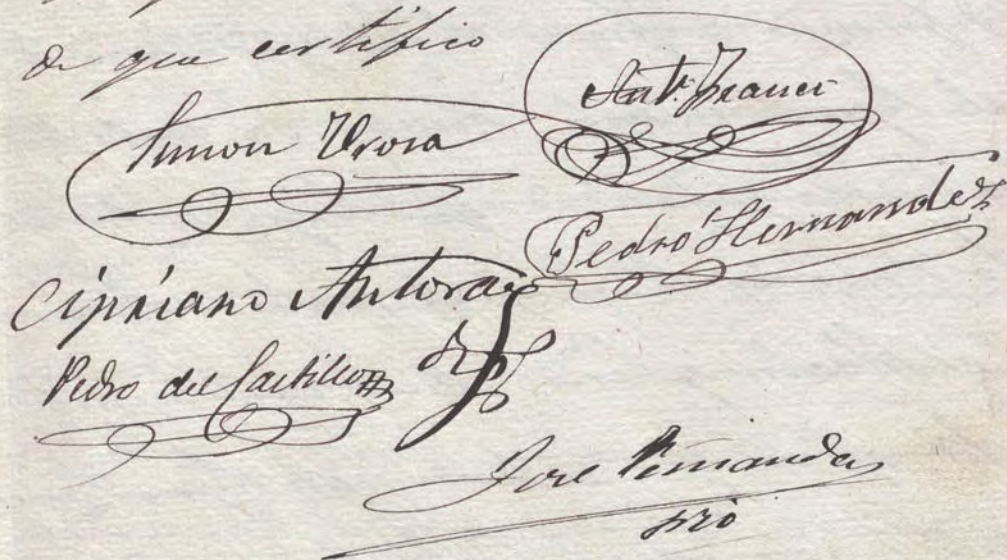 de que certifico
Simon Urosa
Ant.º Franci
Pedro Hernandez
Cipriano Antoraz
Pedro del Castillo
José Fernandez
srio